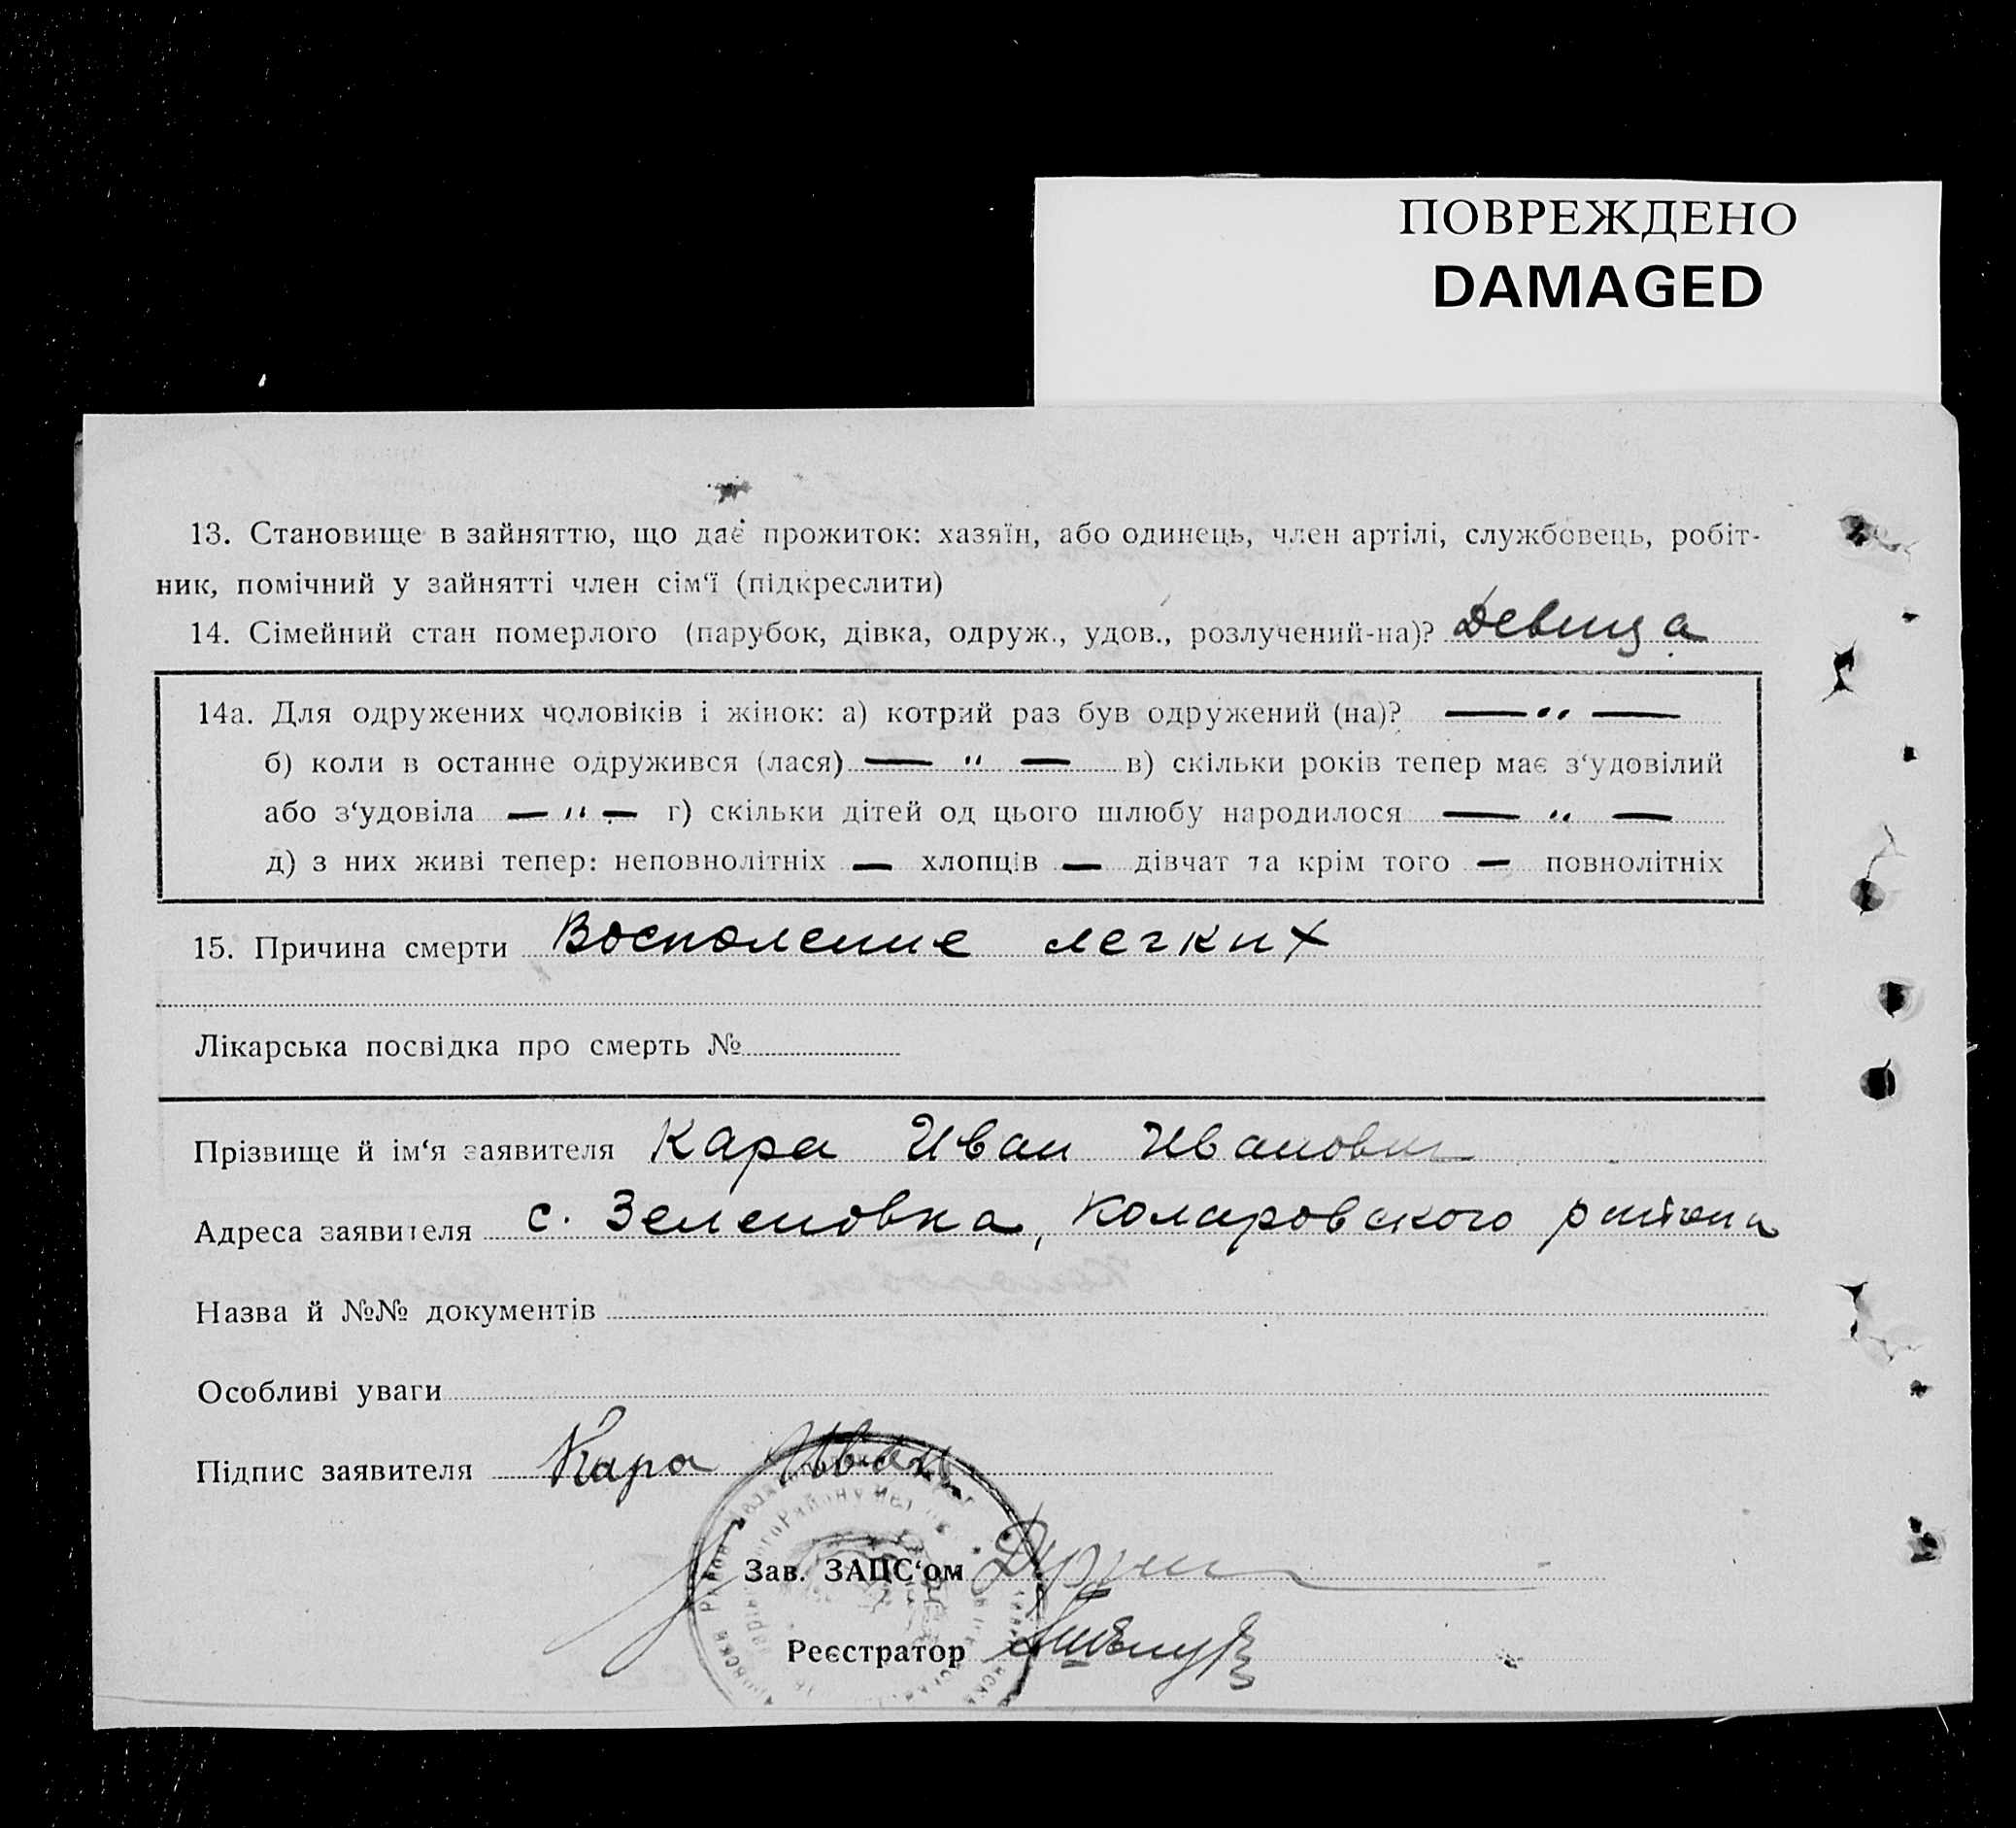 ПОВРЕЖДЕНО
DAMAGED
13. Становище в зайняттю, що дає прожиток: хазяїн, або одинець, член артілі, службовець, робіт-
ник, помічний у зайнятті член сім‘ї (підкреслити)
14. Сімейний стан померлого (парубок, дівка, одруж., удов., розлучений-на)? Девица
14а. Для одружених чоловіків і жінок: а) котрий раз був одружений (на)? — „ —
б) коли в останнє одружився (лася) — „ — в) скільки років тепер має з‘удовілий
або з‘удовіла — „ — г) скільки дітей од цього шлюбу народилося — „ —
д) з них живі тепер: неповнолітніх — хлопців — дівчат та крім того — повнолітніх
15. Причина смерти Воспаление легких
Лікарська посвідка про смерть №
Прізвище й ім‘я заявителя Кара Иван Иванович
Адреса заявителя с. Зеленовка, Коларовского района
Назва й №№ документів
Особливі уваги
Підпис заявителя Кара Иван
Зав. ЗАПС‘ом
Реєстратор